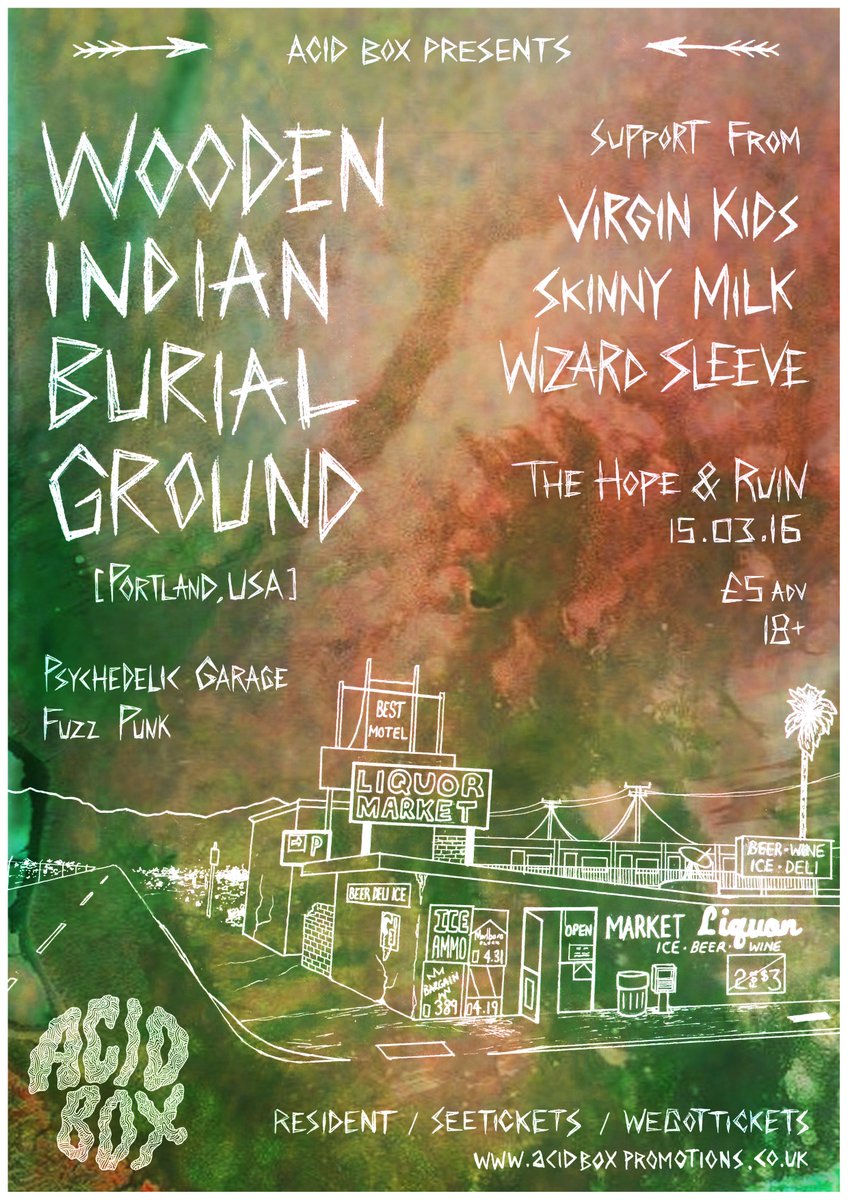 ACID BOX PRESENTS
WOODEN
INDIAN
BURIAL
GROUND
[PORTLAND, USA]
PSYCHEDELIC GARAGE
FUZZ PUNK
SUPPORT FROM
VIRGIN KIDS
SKINNY MILK
WIZARD SLEEVE
THE HOPE & RUIN
15.03.16
£5 ADV
18+
BEST
MOTEL
LIQUOR
MARKET
P
BEER DELI ICE
ICE
AMMO
BARGAIN
389
Marlboro
4.31
4.19
OPEN
MARKET Liquor
ICE · BEER · WINE
BEER · WINE
ICE · DELI
ACID
BOX
RESIDENT / SEETICKETS / WEGOTTICKETS
WWW.ACIDBOXPROMOTIONS.CO.UK